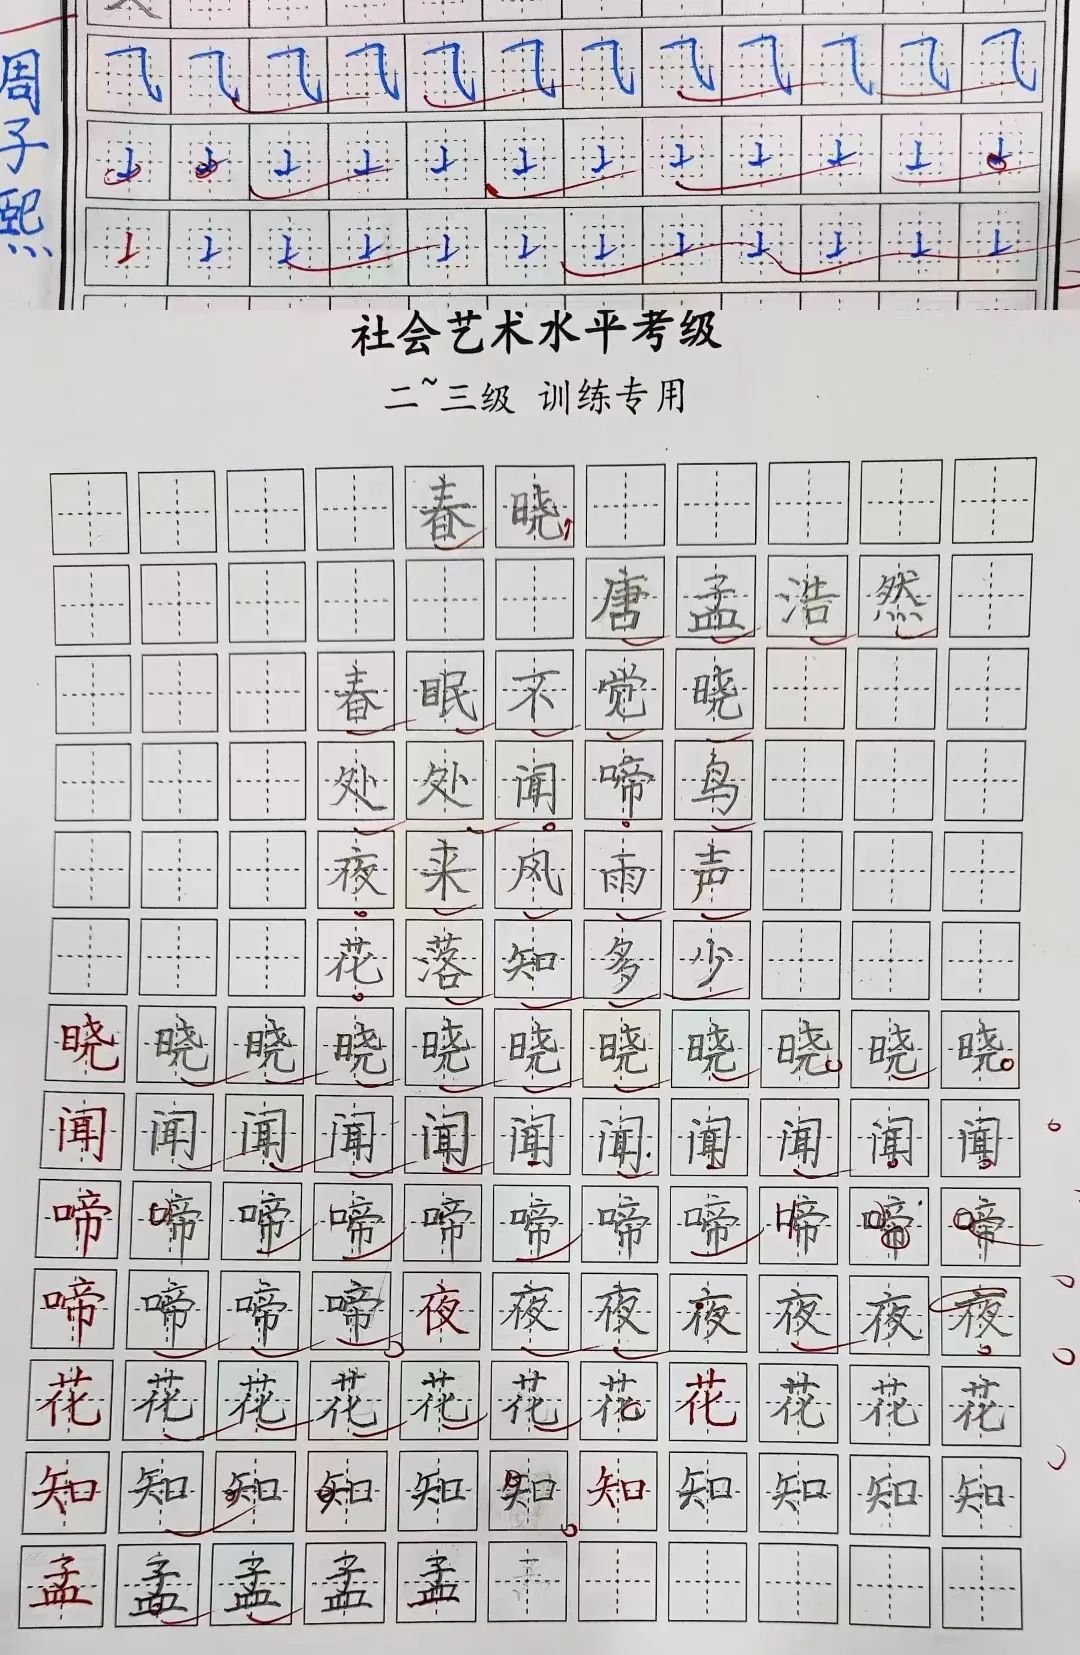 周子熙
乁 乁 乁 乁 乁 乁 乁 乁 乁 乁 乁 乁
社会艺术水平考级
二~三级 训练专用
春晓
唐孟浩然
春眠不觉晓
处处闻啼鸟
夜来风雨声
花落知多少
晓晓晓晓晓晓晓晓晓晓晓
闻闻闻闻闻闻闻闻闻闻闻
啼啼啼啼啼啼啼啼啼啼啼
啼啼啼啼夜夜夜夜夜夜夜
花花花花花花花花花花花
知知知知知知知知知知知
孟孟孟孟孟